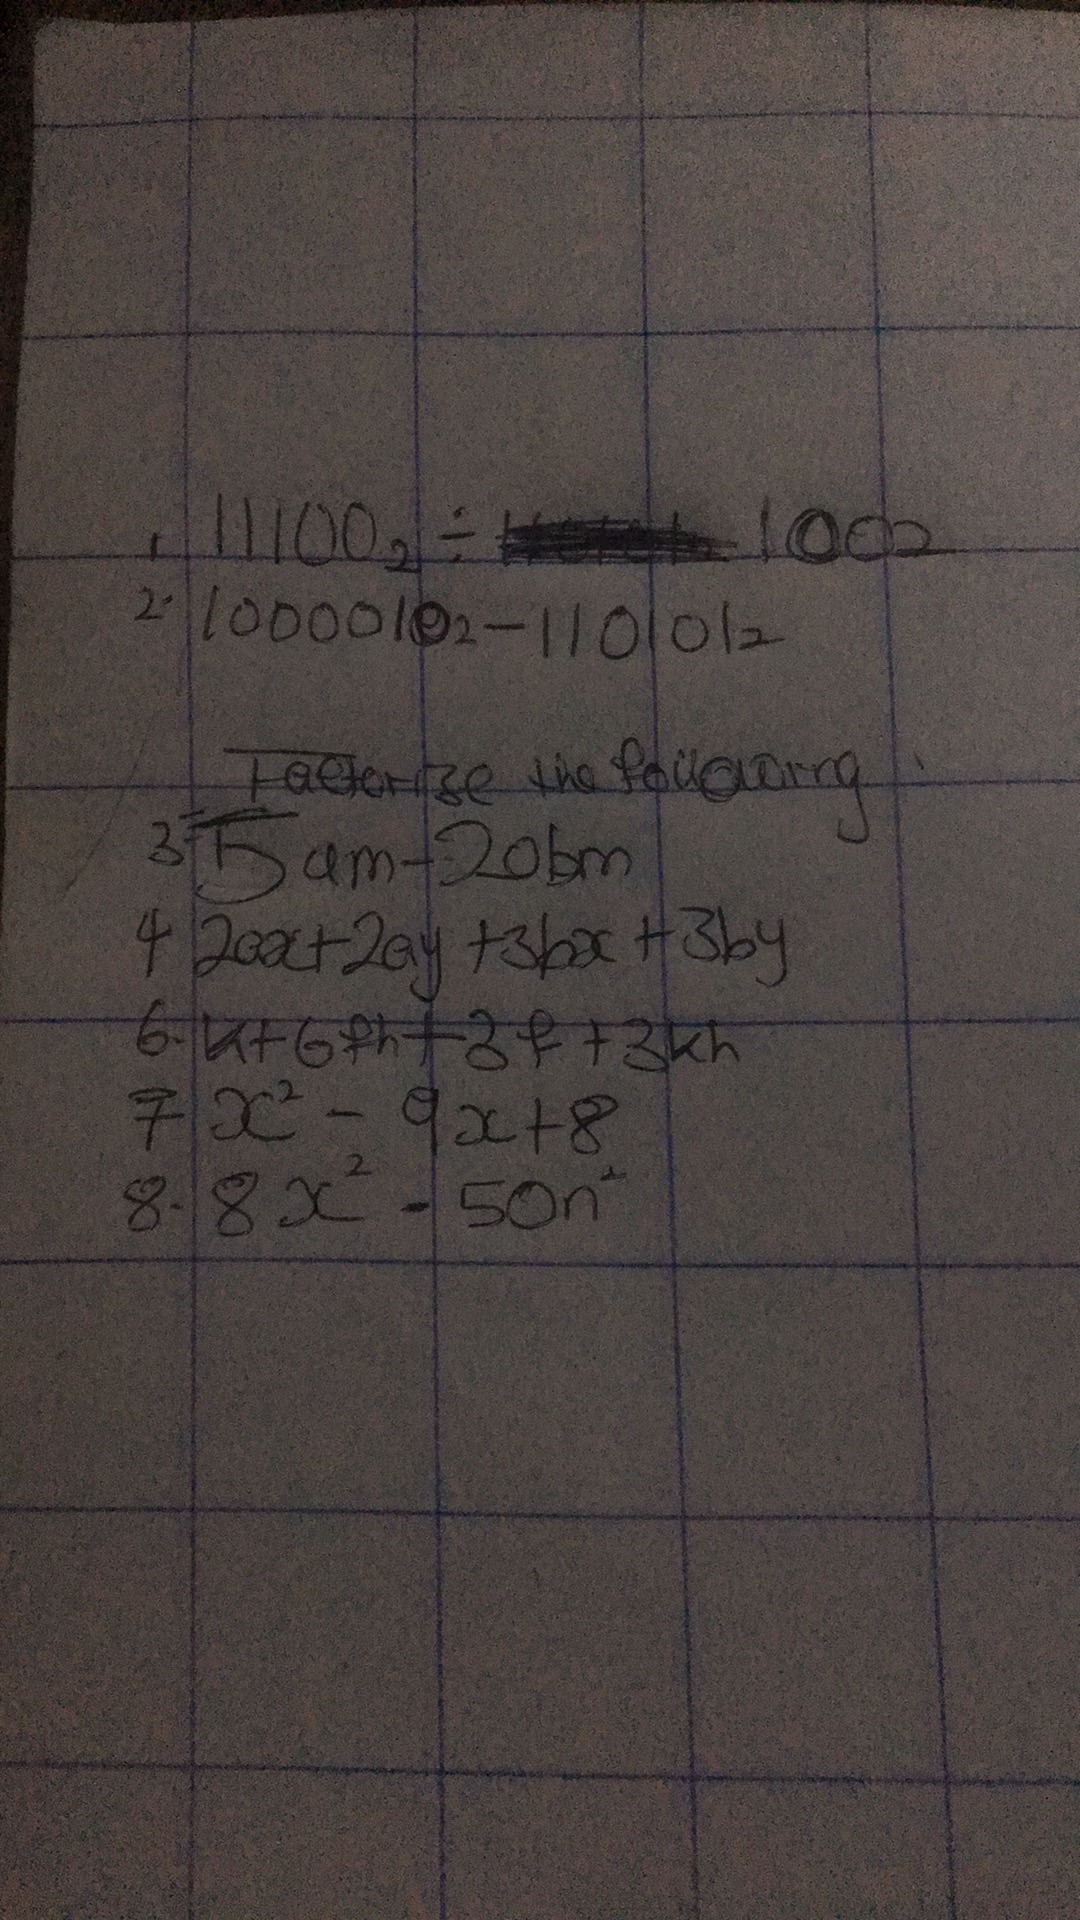 1 11100₂ ÷ 100₂
2. 1000010₂ - 110101₂
Factorize the following.
3 5am - 20bm
4 2ax + 2ay + 3bx + 3by
6. k + 6fh + 2f + 3kh
7 x² - 9x + 8
8. 8x² - 50n²